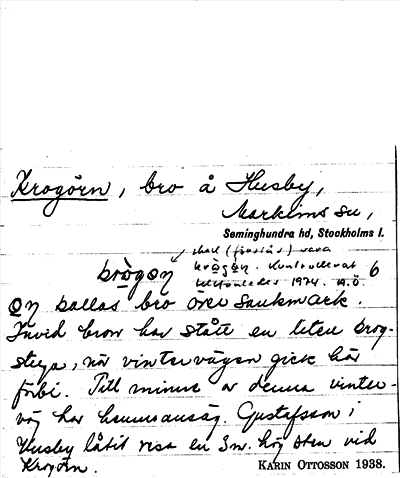 Krogörn, bro å Husby,
Markims sn,
Seminghundra hd, Stockholms l.
skall (förstås) vara
krògo̱n krògo̱n. Kontrollerat 6
1974. A.Ö.
kallas bro över sankmark.
Invid bron har stått en liten krog-
stuga, när vintervägen gick här
förbi. Till minne av denna vinter-
väg har hemmansäg. Gustafsson i
Husby låtit resa en 3 m. hög sten vid
Krogörn.
KARIN OTTOSSON 1938.